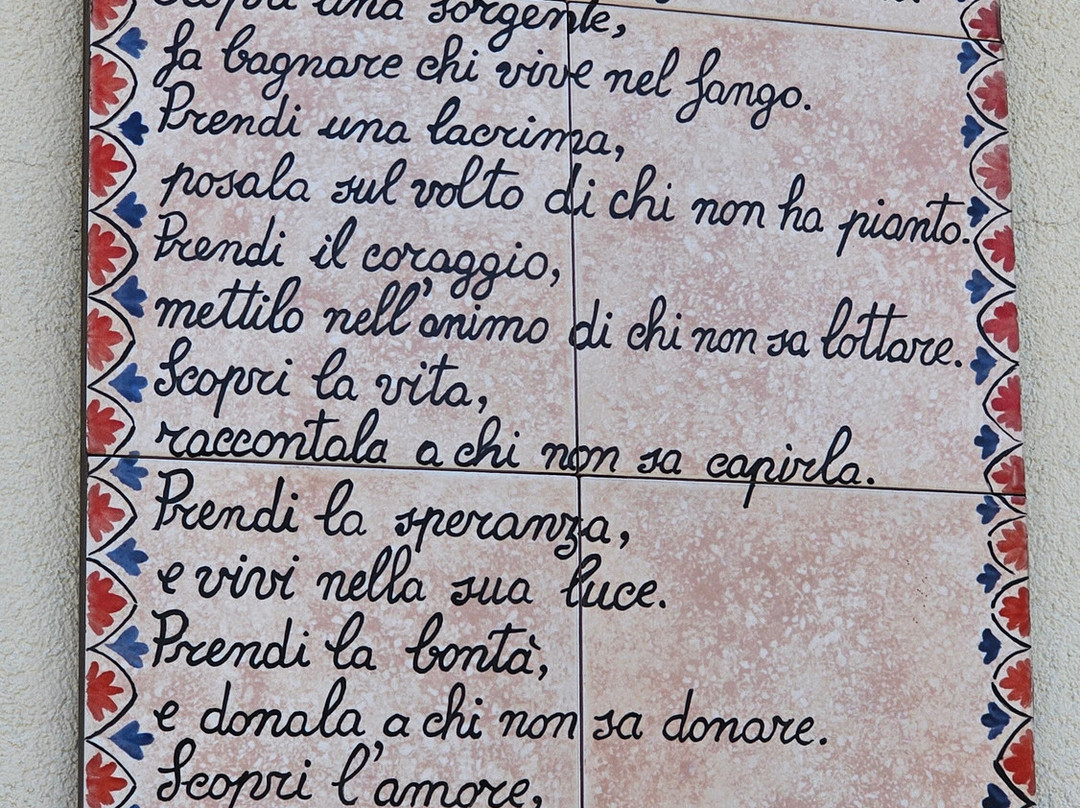 Scopri una sorgente,
fa bagnare chi vive nel fango.
Prendi una lacrima,
posala sul volto di chi non ha pianto.
Prendi il coraggio,
mettilo nell'animo di chi non sa lottare.
Scopri la vita,
raccontala a chi non sa capirla.
Prendi la speranza,
e vivi nella sua luce.
Prendi la bontà,
e donala a chi non sa donare.
Scopri l'amore,